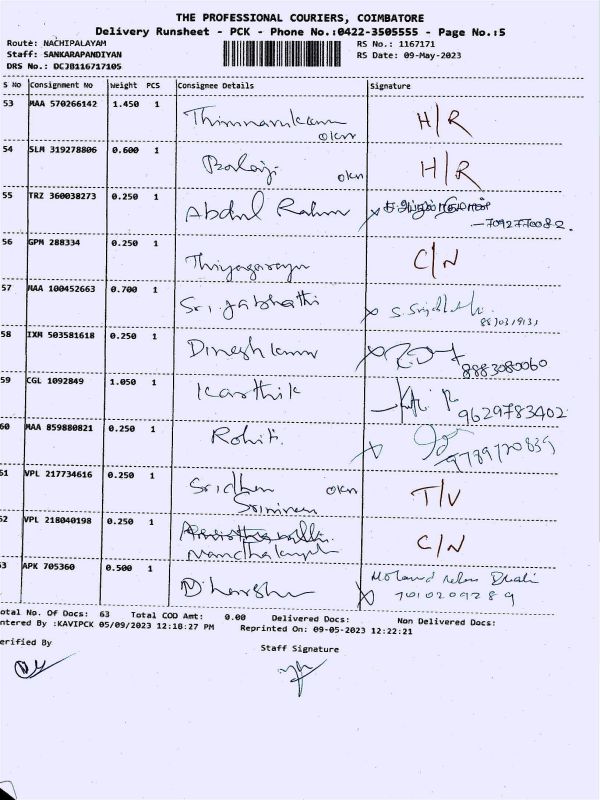 THE PROFESSIONAL COURIERS, COIMBATORE
Delivery Runsheet - PCK - Phone No.:0422-3505555 - Page No.:5
Route: NACHIPALAYAM RS No.: 1167171
Staff: SANKARAPANDIYAN RS Date: 09-May-2023
DRS No.: DCJB116717105
S No Consignment No Weight PCS Consignee Details Signature
53 MAA 570266142 1.450 1 H/R
okn
54 SLM 319278806 0.600 1 Balaji okn H/R
55 TRZ 360038273 0.250 1 Abdul Rahm
7092770082.
56 GPM 288334 0.250 1 Thiyagaraju C/N
57 MAA 100452663 0.700 1 Sri
58 IXM 503581618 0.250 1 Dinesh kumar
8883080060
59 CGL 1092849 1.050 1 Karthik
9629783402
60 MAA 859880821 0.250 1 Rohit
9789720839
61 VPL 217734616 0.250 1 Sridhar okn T/V
62 VPL 218040198 0.250 1 C/N
63 APK 705360 0.500 1 Dharshu
7010209289
otal No. Of Docs: 63 Total COD Amt: 0.00 Delivered Docs: Non Delivered Docs:
ntered By :KAVIPCK 05/09/2023 12:18:27 PM Reprinted On: 09-05-2023 12:22:21
erified By Staff Signature